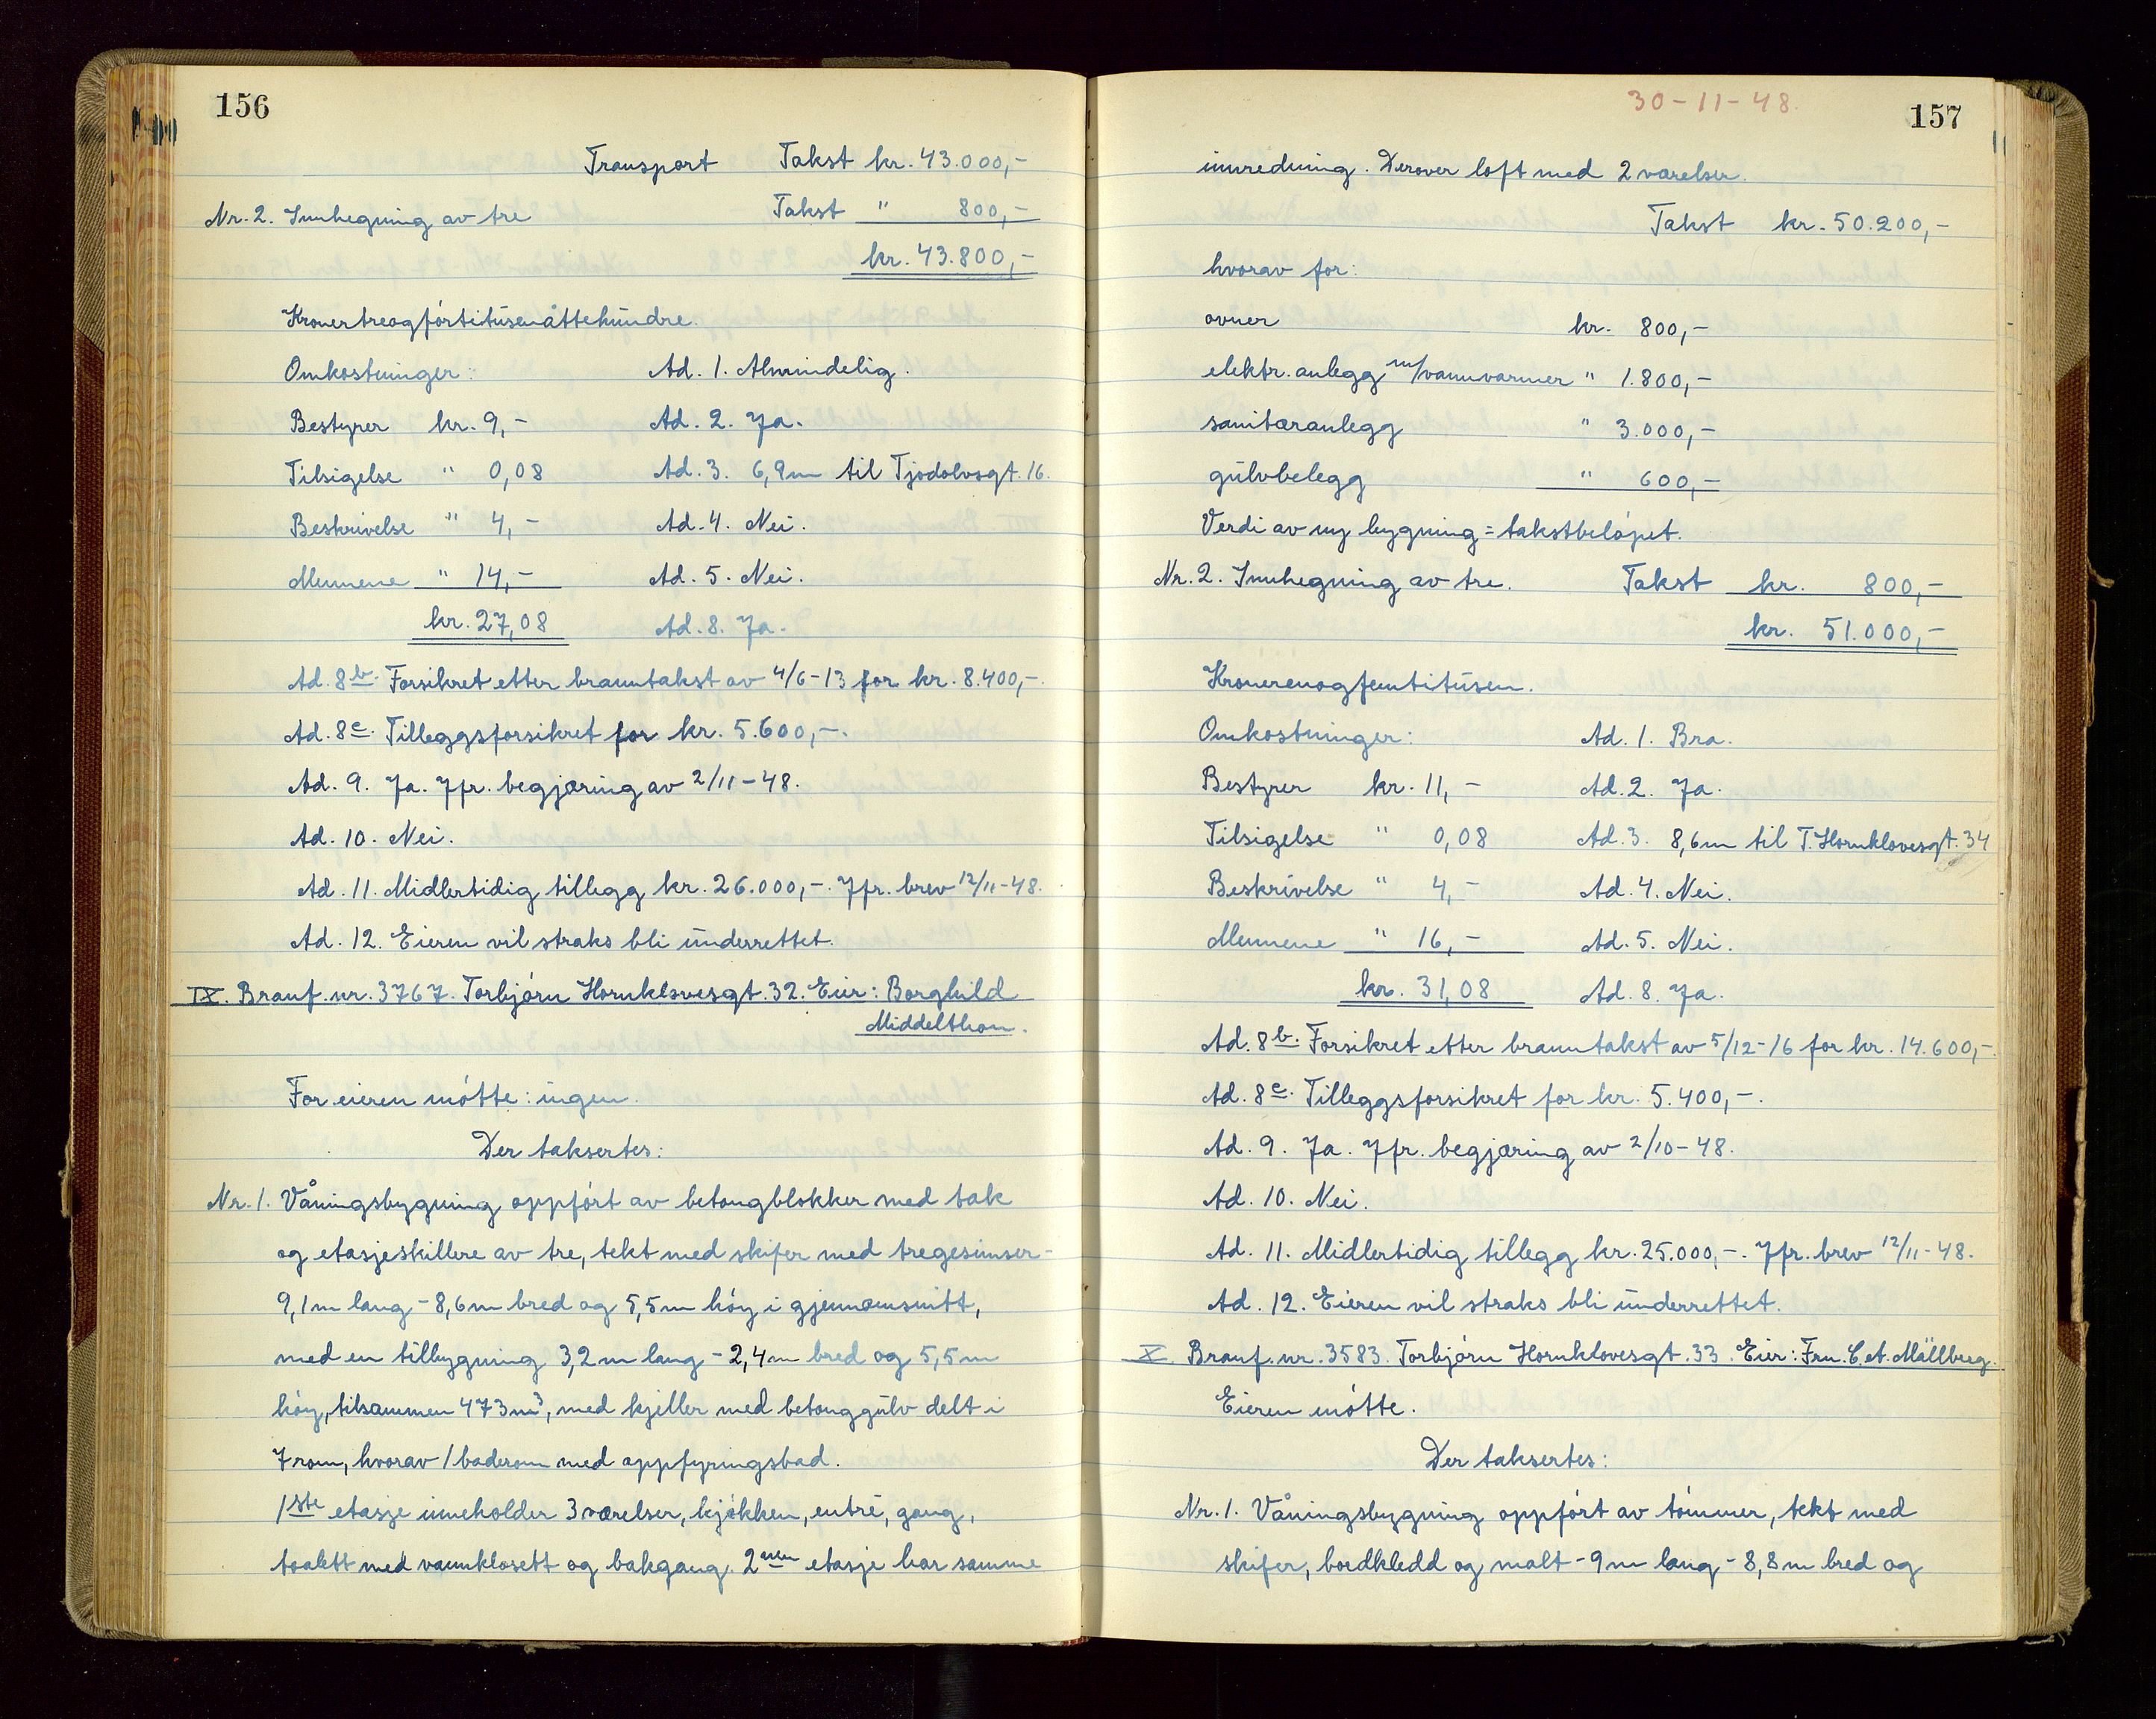 156
Transport Takst kr. 43.000,-
Nr. 2. Innhegning av tre Takst " 800,-
kr. 43.800,-
Kronertreogførtitusenåttehundre.
Omkostninger: Ad. 1. Almindelig.
Bestyrer kr. 9,- Ad. 2. Ja.
Tilsigelse " 0,08 Ad. 3. 6,9m til Tjodolvsgt. 16.
Beskrivelse " 4,- Ad. 4. Nei.
Mennene " 14,- Ad. 5. Nei.
kr. 27,08 Ad. 8. Ja.
Ad. 8b. Forsikret etter branntakst av 4/6-13 for kr. 8.400,-.
Ad. 8c. Tilleggsforsikret for kr. 5.600,-.
Ad. 9. Ja. Jfr. begjæring av 2/11-48.
Ad. 10. Nei.
Ad. 11. Midlertidig tillegg kr. 26.000,-. Jfr. brev 12/11-48.
Ad. 12. Eieren vil straks bli underrettet.
IX. Branf. nr. 3767. Torbjørn Hornklovesgt. 32. Eier: Borghild
Middelthon.
For eieren møtte: ingen.
Der taksertes:
Nr. 1. Våningsbygning oppført av betongblokker med tak
og etasjeskillere av tre, tekt med skifer med tregesimser-
9,1m lang - 8,6m bred og 5,5m høy i gjennomsnitt,
med en tilbygning 3,2m lang - 2,4m bred og 5,5m
høy, tilsammen 473m³, med kjeller med betonggulv delt i
7 rom, hvorav 1 baderom med oppfyringsbad.
1ste etasje inneholder 3 værelser, kjøkken, entré, gang,
toalett med vannklosett og bakgang. 2nen etasje har samme
30-11-48.
157
innredning. Derover loft med 2 værelser.
Takst kr. 50.200,-
hvorav for:
ovner kr. 800,-
elektr. anlegg m/vannvarmer " 1.800,-
sanitæranlegg " 3.000,-
gulvbelegg " 600,-
Verdi av ny bygning = takstbeløpet.
Nr. 2. Innhegning av tre. Takst kr. 800,-
kr. 51.000,-
Kronerenogfemtitusen.
Omkostninger: Ad. 1. Bra.
Bestyrer kr. 11,- Ad. 2. Ja.
Tilsigelse " 0,08 Ad. 3. 8,6m til T. Hornklovesgt. 34
Beskrivelse " 4,- Ad. 4. Nei.
Mennene " 16,- Ad. 5. Nei.
kr. 31,08 Ad. 8. Ja.
Ad. 8b. Forsikret etter branntakst av 5/12-16 for kr. 14.600,-.
Ad. 8c. Tilleggsforsikret for kr. 5.400,-.
Ad. 9. Ja. Jfr. begjæring av 2/10-48.
Ad. 10. Nei.
Ad. 11. Midlertidig tillegg kr. 25.000,-. Jfr. brev 12/11-48.
Ad. 12. Eieren vil straks bli underrettet.
X. Branf. nr. 3583. Torbjørn Hornklovesgt. 33. Eier: Fru. C. A. Mällberg.
Eieren møtte.
Der taksertes:
Nr. 1. Våningsbygning oppført av tømmer, tekt med
skifer, bordkledd og malt - 9m lang - 8,8m bred og